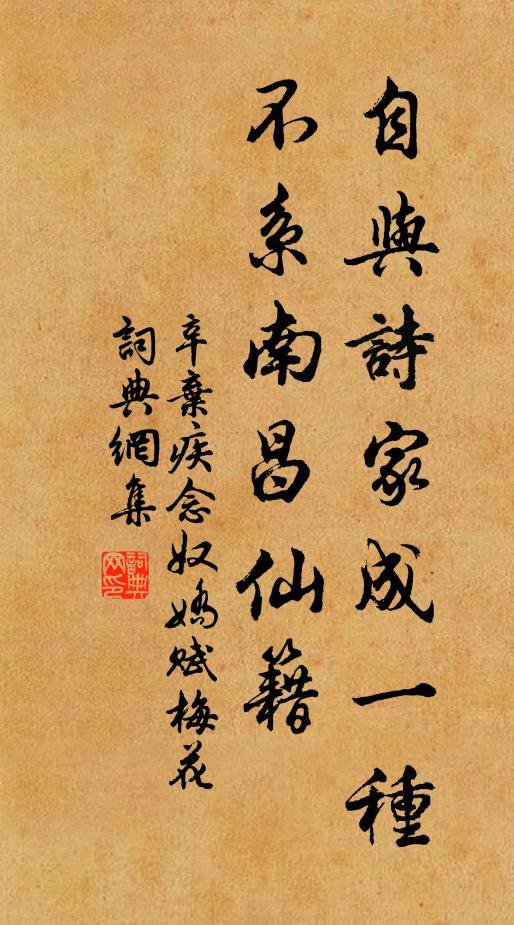 自與詩家成一種
不系南昌仙籍
辛棄疾念奴嬌賦梅花
詞典網集
詞典網印